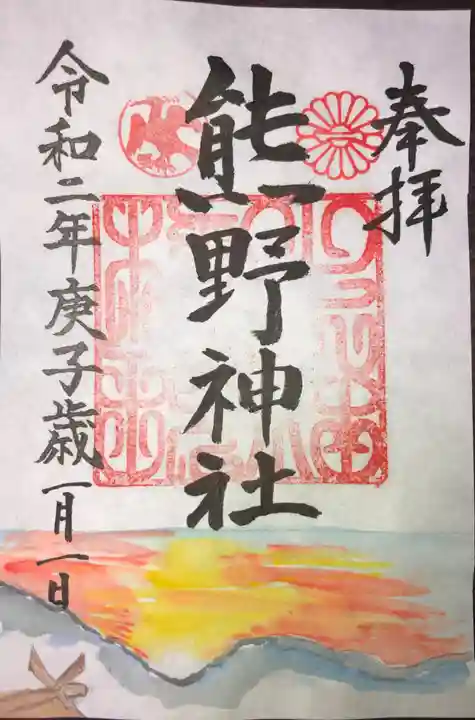 奉拝
熊野神社
令和二年庚子歳一月一日